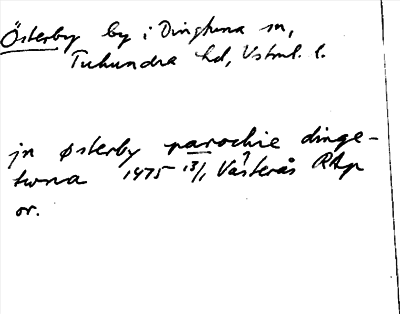 Österby by i Dingtuna sn,
Tuhundra hd, Vstml. l.
jn østerby parochie dinge-
twna 1475 13/1 Västerås RAp
or.